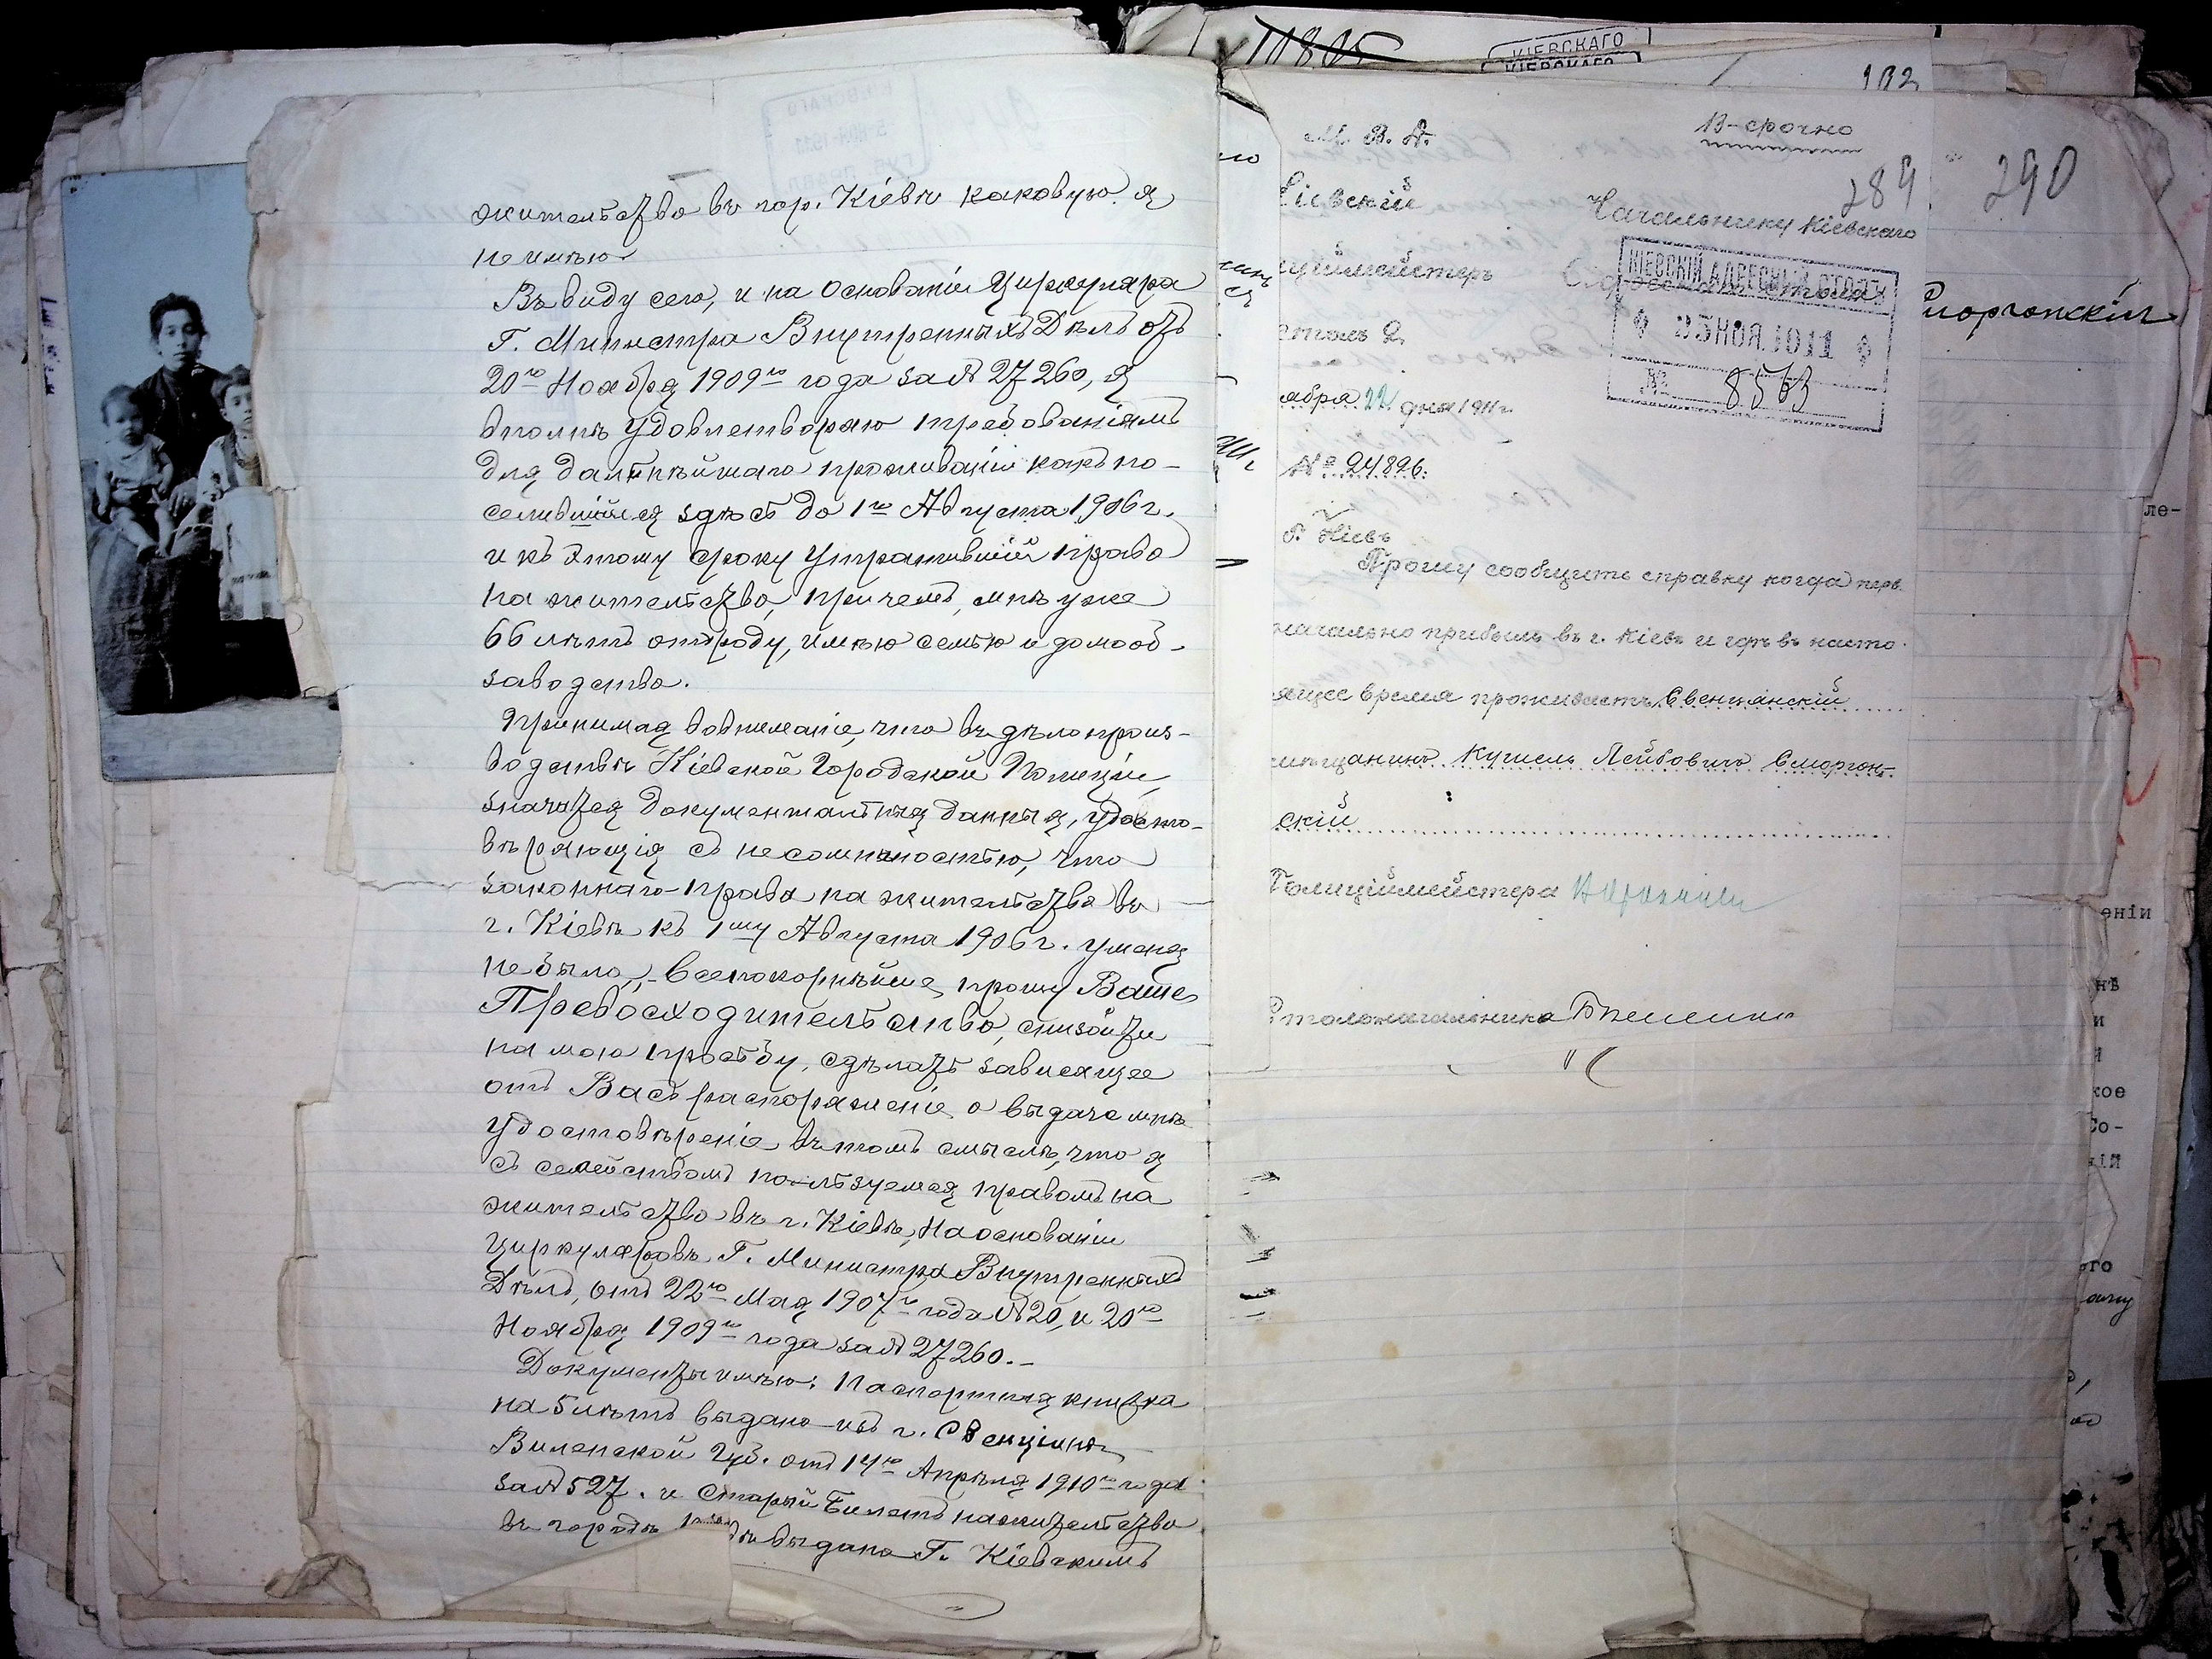 жительство въ гор. Кіевѣ каковую я
не имѣю.
Въ виду сего, и на основаніи Циркуляра
Г. Министра Внутренныхъ Дѣлъ отъ
20го Ноября 1909го года за № 27260, я
вполнѣ удовлетворяю требованіямъ
для дальнѣйшаго проживанія какъ по-
селившійся здѣсь до 1го Августа 1906 г.
и къ этому сроку утратившій право
на жительство, причемъ, мнѣ уже
66 лѣтъ отъ роду, имѣю семью и домооб-
заводство.
Принимая вовниманіе, что въ дѣлопроиз-
водствѣ Кіевской Городской Полиціи
значатся документальныя данныя, удосто-
вѣряющія съ несомнѣностью, что
законнаго права на жительство въ
г. Кіевѣ къ 1му Августа 1906 г. у меня
не было, – всепокорнѣйше прошу Ваше
Превосходительство, снизойти
на мою просьбу, сдѣлать зависящее
отъ Васъ распоряженіе о выдаче мнѣ
удостовѣреніе въ томъ смыслѣ, что я
съ семействомъ пользуемся правомъ на
жительство въ г. Кіевѣ, на основаніи
Циркуляровъ Г. Министра Внутренныхъ
Дѣлъ, отъ 22го Мая 1907го года № 20, и 20го
Ноября 1909го года за № 27260.–
Документы имѣю: Паспортная книжка
на 5 лѣтъ выдано изъ г. Свенціянъ
Виленской Губ. отъ 14го Апрѣля 1910го года
за № 527. и Старый Билетъ на жительство
въ городѣ выдана Г. Кіевскимъ
11805
КІЕВСКАГО
КІЕВСКАГО
132
М. В. Д.
В-срочно
289
290
Кіевскій
Начальнику Кіевскаго
Адреснаго стола
ЦІЙМЕЙСТЕРЪ
КІЕВСКІЙ АДРЕСНЫЙ СТОЛЪ
25 НОЯ. 1911
№ 8563
Сморгонскій
столъ 2.
ября 22 дня 1911 г.
№ 24826.
г. Кіевъ
Прошу сообщить справку когда перв.
начально прибылъ въ г. Кіевъ и гдѣ въ насто-
ящее время проживаетъ Свенцянскій
мѣщанинъ Кушель Лейбовичъ Сморгон-
скій
Полиціймейстера
Столоначальника
ле-
еніи
нѣ
и
кое
Со-
ній
ого